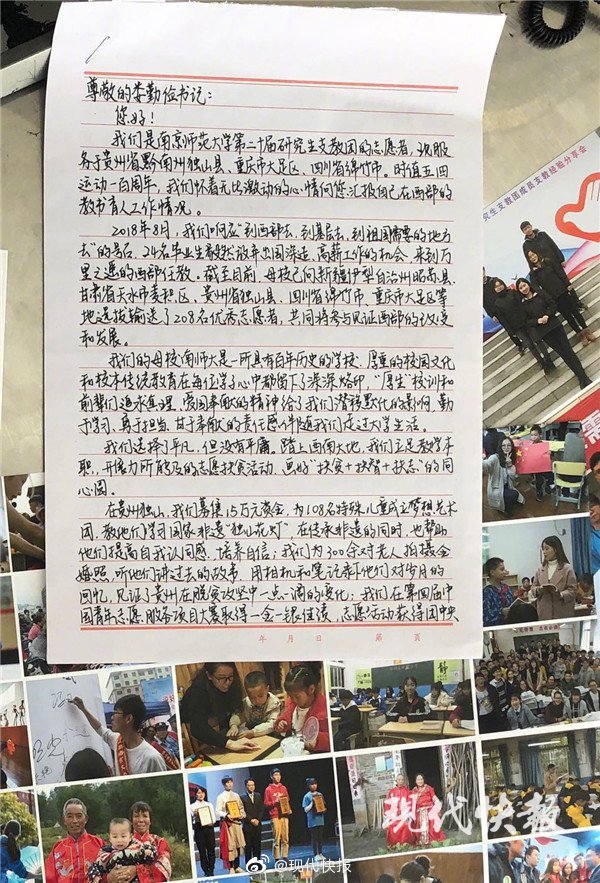 尊敬的娄勤俭书记：
您好！
我们是南京师范大学第二十届研究生支教团的志愿者，现服
务于贵州省黔南州独山县、重庆市大足区、四川省绵竹市。时值五四
运动一百周年，我们怀着无比激动的心情向您汇报自己在西部的
教书育人工作情况。
2018年8月，我们响应“到西部去，到基层去，到祖国需要的地方
去”的号召，24名毕业生毅然放弃出国深造、高薪工作的机会，来到万
里之遥的西部任教。截至目前，母校已向新疆伊犁自治州昭苏县、
甘肃省天水市麦积区、贵州省独山县、四川省绵竹市、重庆市大足区等
地选拔输送了208名优秀志愿者，共同将参与见证西部的改变
和发展。
我们的母校南师大是一所具有百年历史的学校，厚重的校园文化
和校本传统教育在每位学子心中都留下了深深烙印，“厚生”校训和
前辈们追求真理、爱国奉献的精神给了我们潜移默化的影响，勤
于学习、勇于担当、甘于奉献的责任感伴随我们走过大学生活。
我们选择了平凡，但没有平庸。踏上西南大地，我们立足教学本
职，开展力所能及的志愿扶贫活动，画好“扶贫+扶智+扶志”的同
心圆。
在贵州独山，我们募集15万元资金，为108名特殊儿童成立梦想艺术
团，教他们学习国家非遗“独山花灯”，在传承非遗的同时，也帮助
他们提高自我认同感，培养自信；我们为300余对老人拍摄金
婚照，听他们讲过去的故事，用相机和笔记录下他们对岁月的
回忆，见证了贵州在脱贫攻坚中一点一滴的变化；我们在第四届中
国青年志愿服务项目大赛取得一金一银佳绩，志愿活动获得团中央
年 月 日 第 页
究生支教团成员支教经验分享会
现代快报
@现代快报